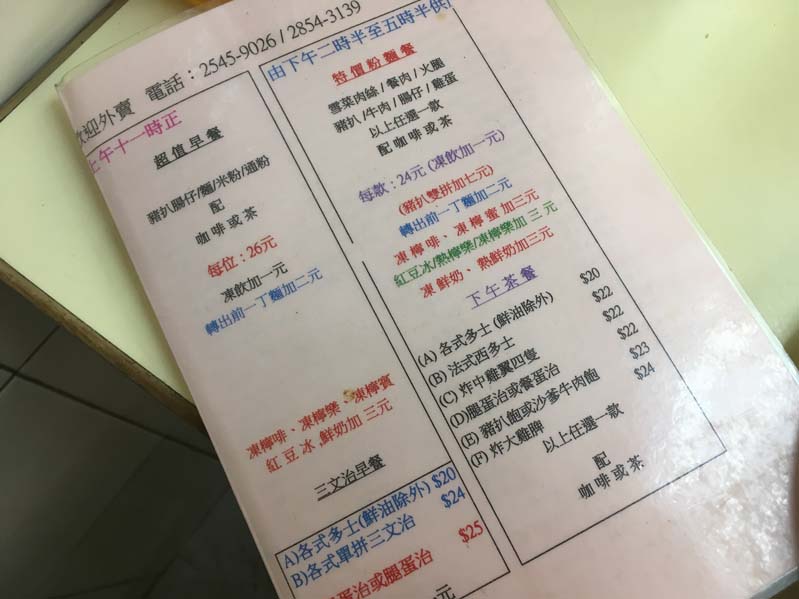 歡迎外賣 電話：2545-9026 / 2854-3139
上午十一時正
超值早餐
豬扒腸仔/麵/米粉/通粉
配
咖啡或茶
每位：26元
凍飲加一元
轉出前一丁麵加二元
凍檸啡、凍檸樂、凍檸賓
紅豆冰、鮮奶加三元
三文治早餐
A)各式多士(鮮油除外) $20
B)各式單拼三文治 $24
蛋治或腿蛋治 $25
元
由下午二時半至五時半供
特價粉麵餐
雪菜肉絲/餐肉/火腿
豬扒/牛肉/腸仔/雞蛋
以上任選一款
配咖啡或茶
每款：24元(凍飲加一元)
(豬扒雙拼加七元)
轉出前一丁麵加二元
凍檸啡、凍檸蜜加三元
紅豆冰/熱檸樂/凍檸樂加三元
凍鮮奶、熱鮮奶加三元
下午茶餐
(A) 各式多士(鮮油除外) $20
(B) 法式西多士 $22
(C) 炸中雞翼四隻 $22
(D)腿蛋治或餐蛋治 $22
(E) 豬扒飽或沙爹牛肉飽 $23
(F) 炸大雞脾 $24
以上任選一款
配
咖啡或茶